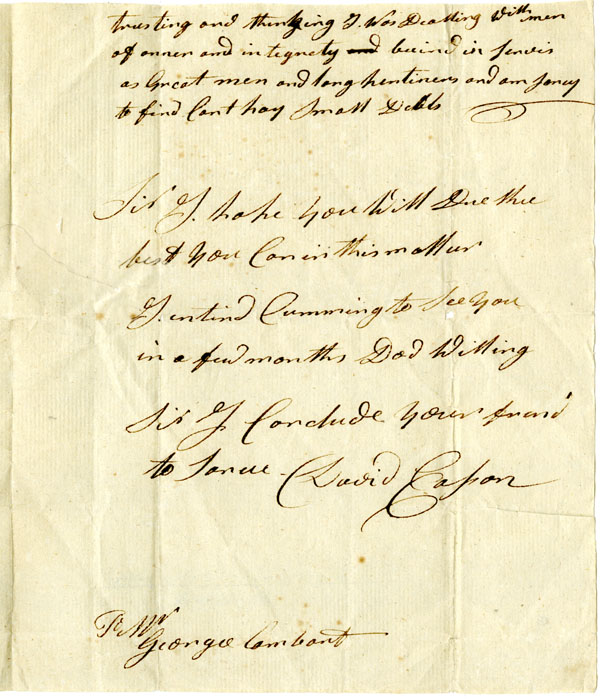 trusting and thinking I Was Dealling With men
of onner and integnety and beeind in servis
as Great men and long hentiners and am Sorey
to find Cant pay Small Debts
Sir I hope you Will Due thee
best You Can in this mattur
I intind Cumming to See You
in a few months God Willing
Sir I Conclude Your frend
to Sarve David Cason
To Mr
George Combart